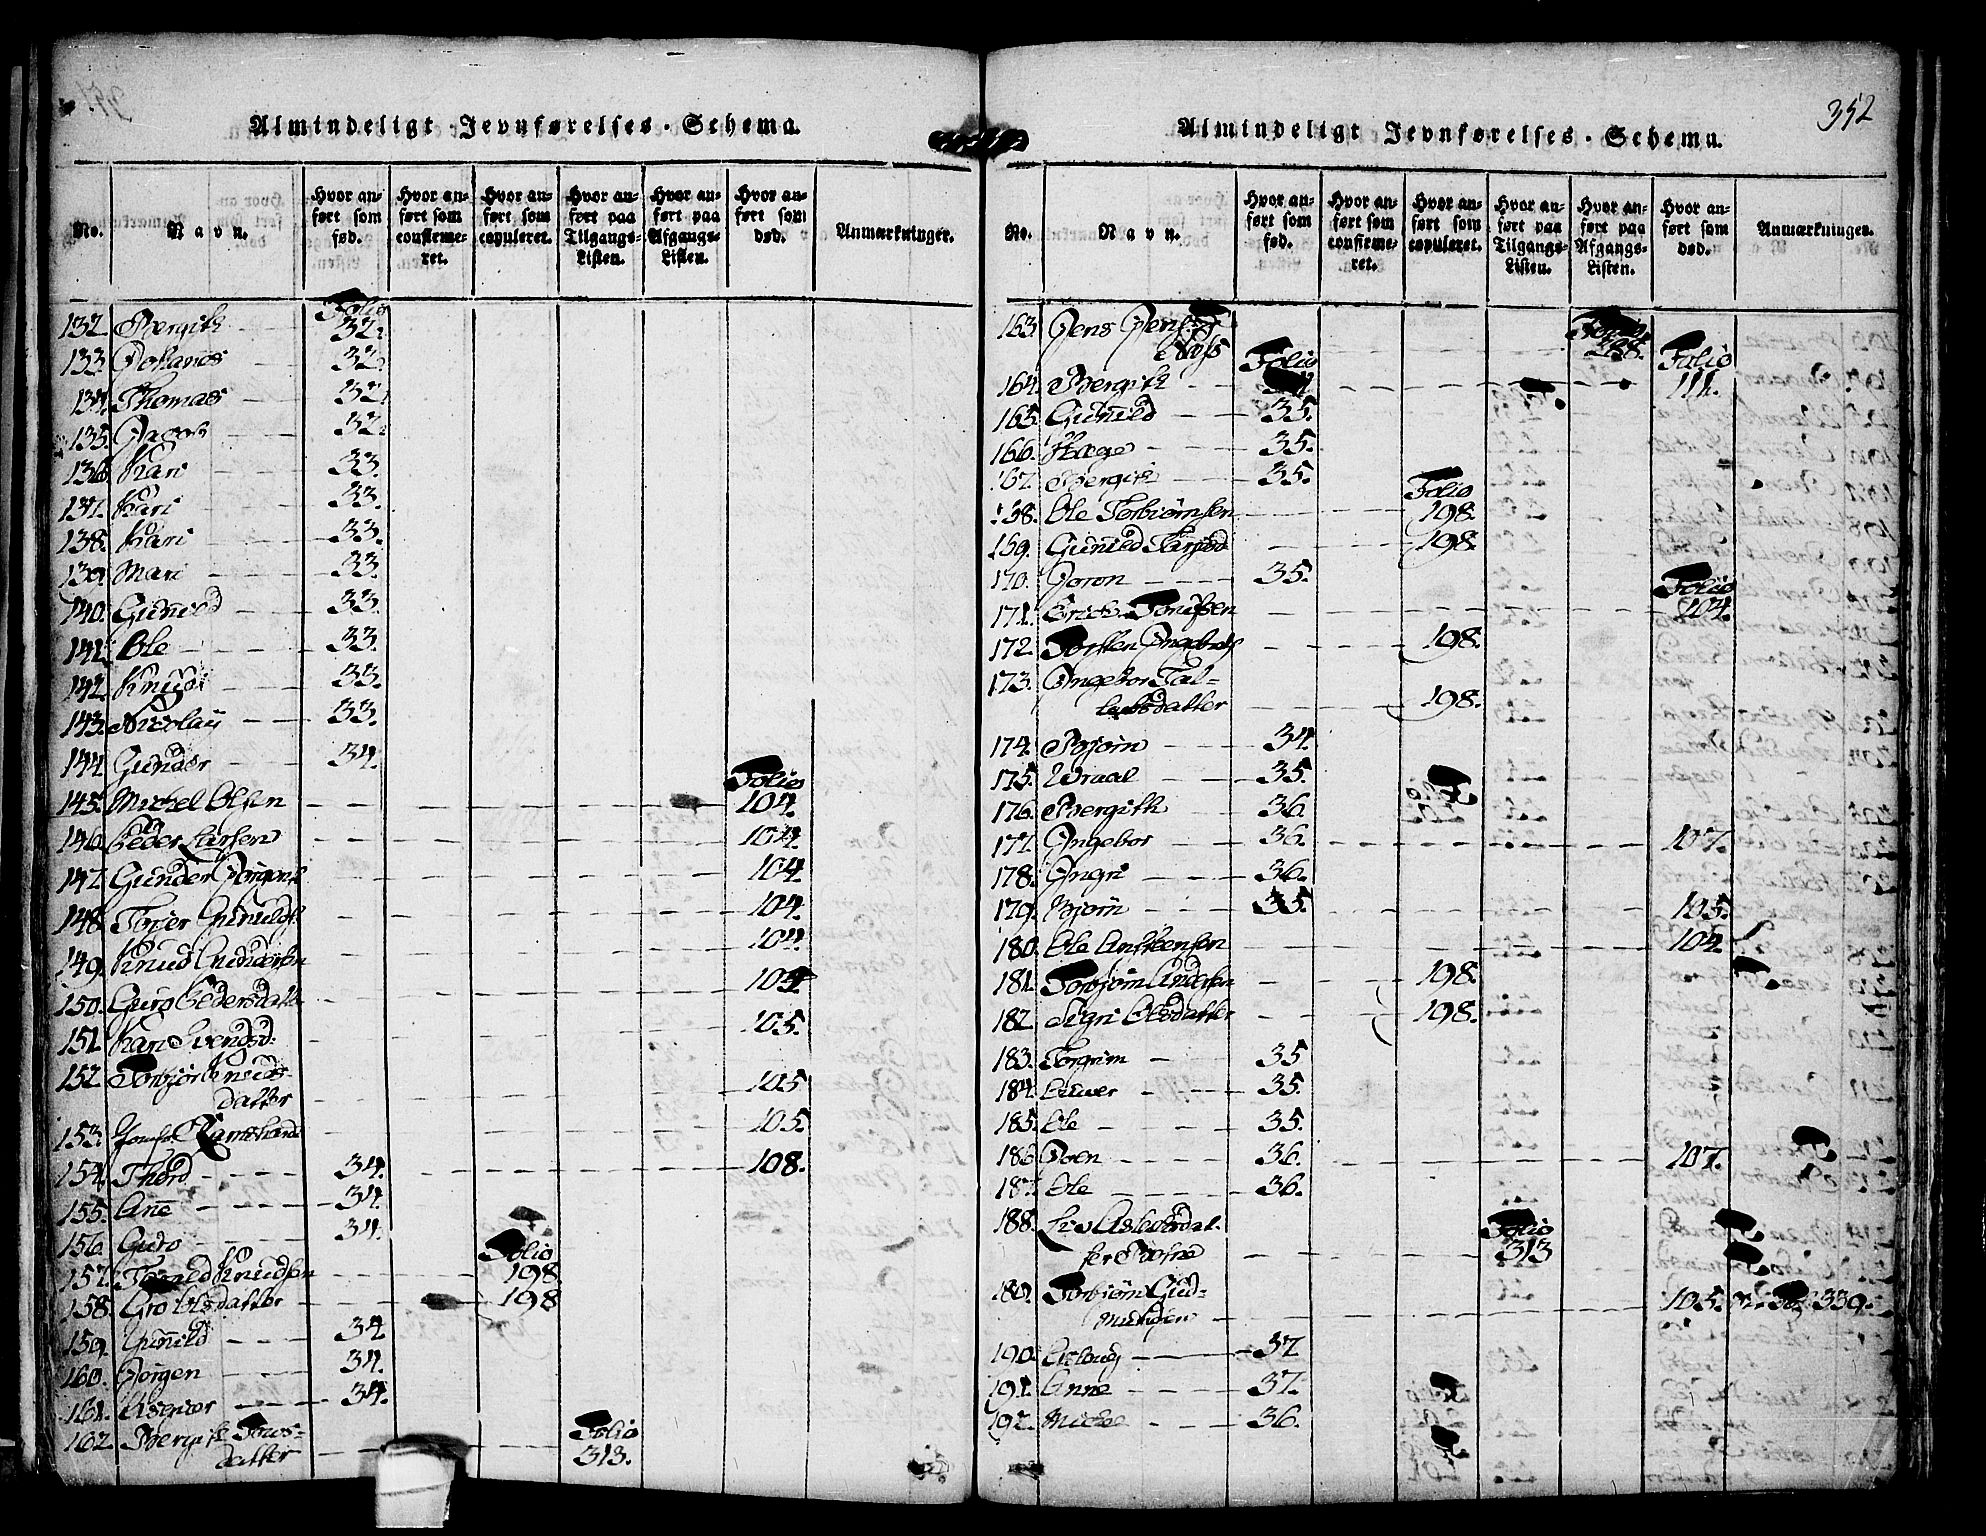 Almindeligt Jevnførelses-Schema.
No.
Navn.
Hvor anført som fød.
Hvor anført som confirmeret.
Hvor anført som copuleret.
Hvor anført paa Tilgangs-Listen.
Hvor anført paa Afgangs-Listen.
Hvor anført som død.
Anmærkninger.
Folio
132. Bergith 32.
133. Johanes 32.
134. Thomas 32.
135. Jacob 32.
136. Kari 33.
137. Kari 33.
138. Kari 33.
139. Mari 33.
140. Gunild 33.
141. Ole 33.
142. Knud 33.
143. Nicolay 33.
144. Gunder 34.
Folio
145. Michel Olsen 104.
146. Peder Larsen 104
147. Gunder Jørgens 104
148. Torjer 104.
149. Knud Gundersen 104.
150. Guro Pedersdatt 104
151. Kari Svendsd: 105.
152. Torbjør Knuds-
datter 105
153. Jomfr. 105.
154. Thord 34. 108.
155. Ane 34.
156. Guro 34.
Folio
157. Knudsen 198.
158. Gro Olsdatter 198
159. Gunild 34
160. Jørgen 34.
161. Asgier 34.
162. Bergith
datter Folio 313.
352
Almindeligt Jevnførelses-Schema.
No.
Navn.
Hvor anført som fød.
Hvor anført som confirmeret.
Hvor anført som copuleret.
Hvor anført paa Tilgangs-Listen.
Hvor anført paa Afgangs-Listen.
Hvor anført som død.
Anmærkninger.
163. Jens
Folio Folio
164. Bergith 111.
165. Gunild 35.
166. Hæge 35.
167. Bergith 35.
Folio
168. Ole Torbiørnsen 198.
169. Gunild 198.
170. Joron 35.
Folio
171. Erich 104.
172. Torsten 198.
173. Ingebor Tal-
datter 198.
174. Bjørn 34.
175. Wraal 35.
176. Bergith 36
177. Ingebor 36. 107.
178. Ingri 36.
179. Bjørn 35. 105.
180. Ole Anstensen 104
181. Torbjørn Andersen 198.
182. Sigri Olsdatter 198.
183. Torgrim 35
184. 35.
185. Ole 35.
186. Joen 36. 107.
187. Ole 36.
188. Liv Folio
313
189. Torbjørn Gud-
mundsen 105. 339.
190. Asloug 37
191. Anne 37.
192. Michel 36.